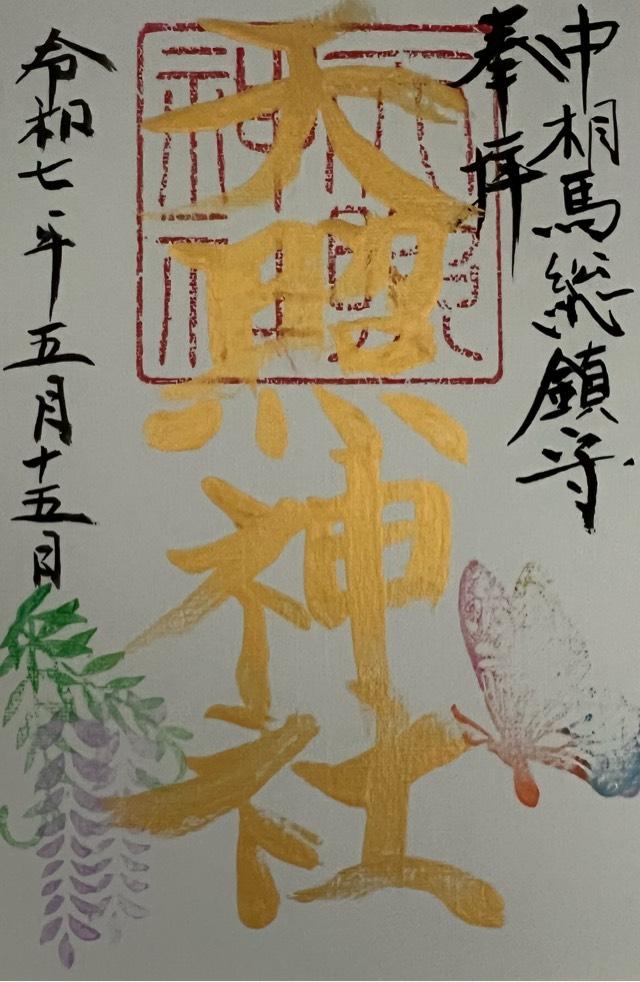 中相馬総鎮守
奉拝
天照神社
令和七年五月十五日